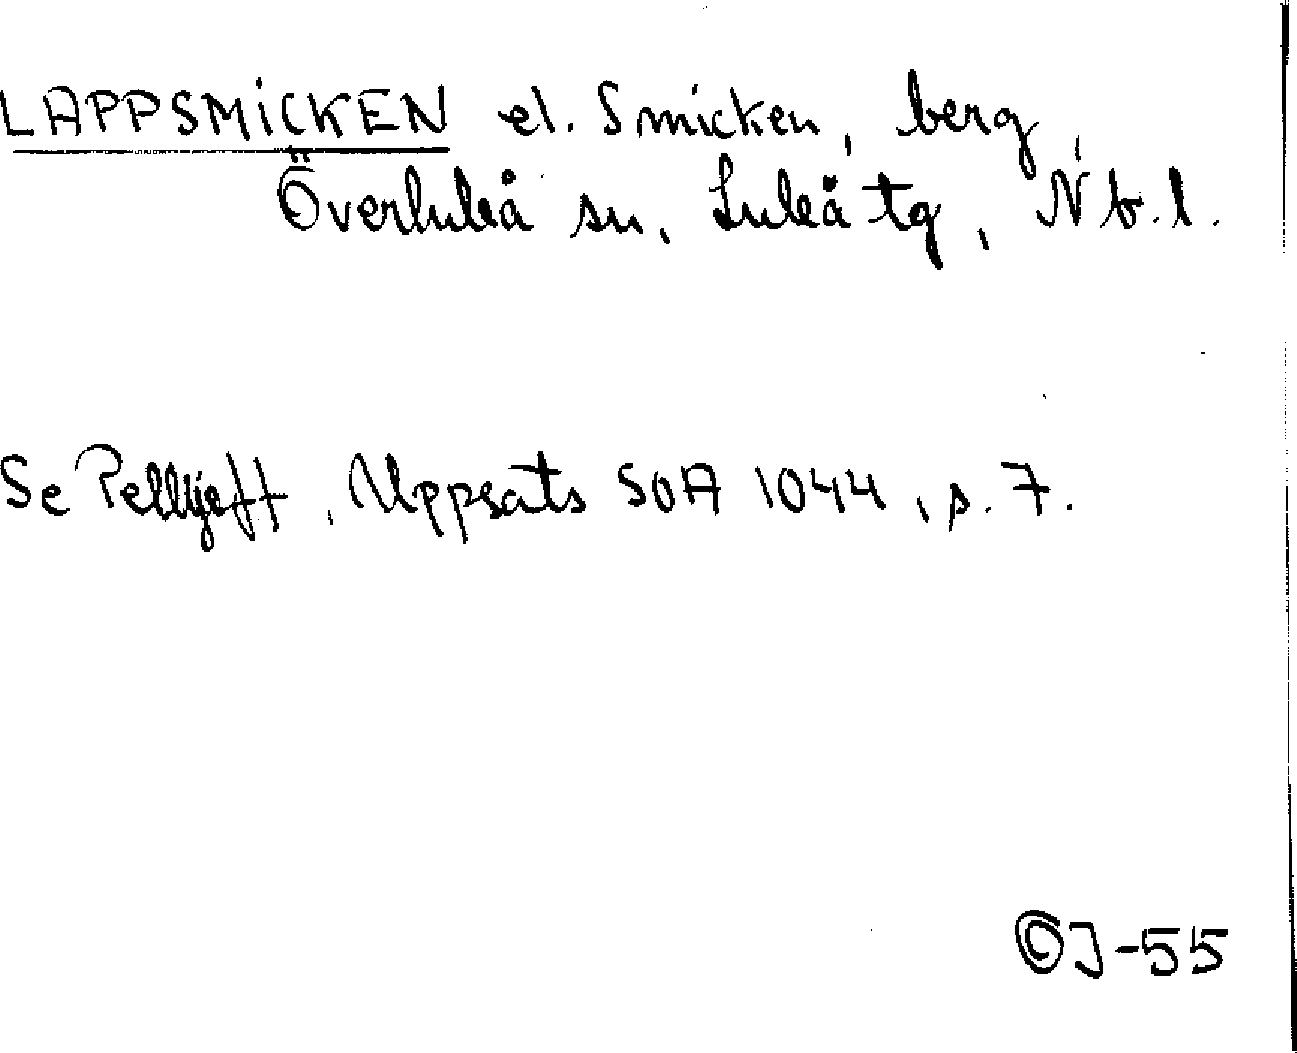 LAPPSMICKEN el. Smicken, berg,
Överluleå sn, Luleå tg, Nb.l.
Se Pellijeff, Uppsats SOA 1044, s. 7.
J-55